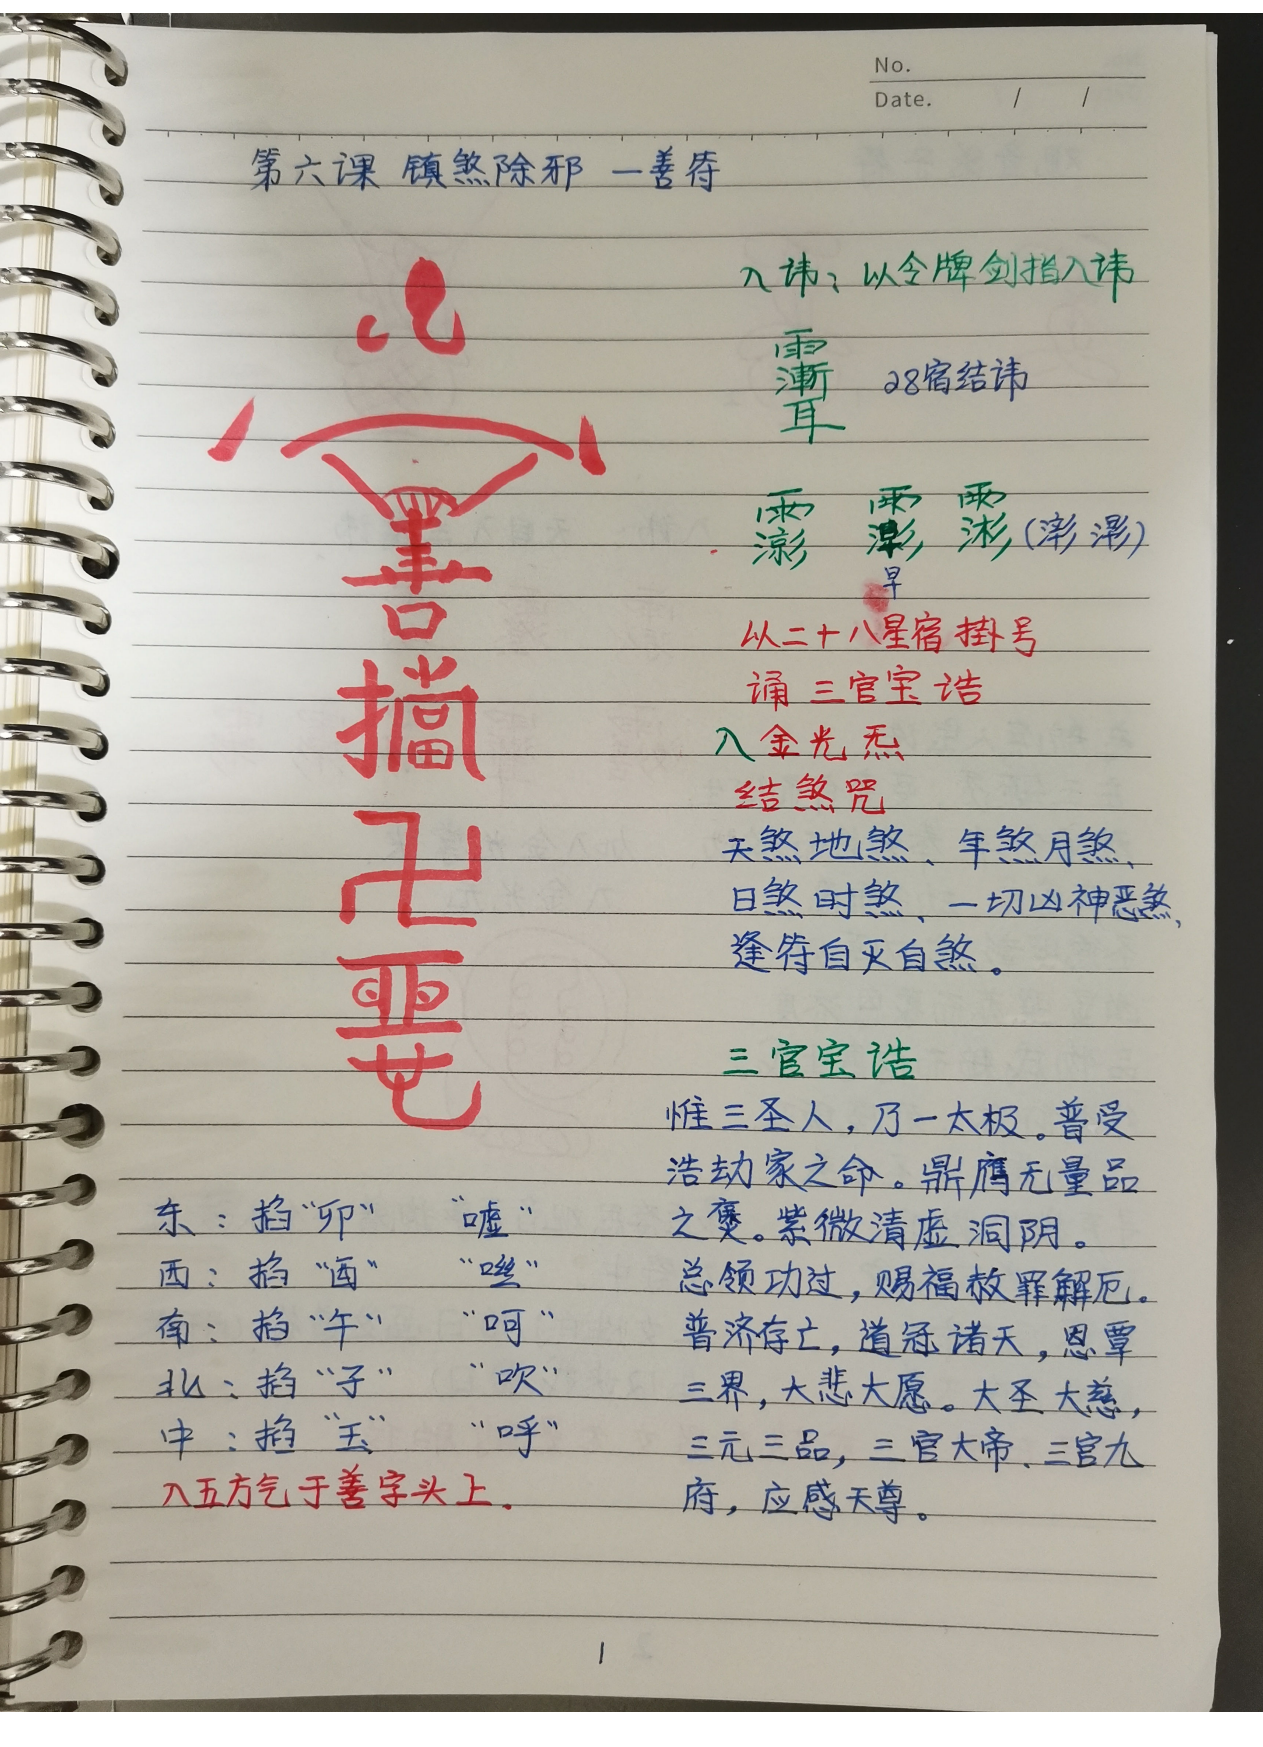 No.
Date. / /
第六课 镇煞除邪 一善符
善
擋
卍
入讳：以令牌剑指入讳
28宿结讳
早
以二十八星宿掛号
诵三官宝诰
入金光炁
结煞咒
天煞地煞、年煞月煞、
日煞时煞、一切凶神恶煞、
逢符自灭自煞。
三官宝诰
惟三圣人，乃一太极。普受
浩劫家之命。鼎膺无量品
之褒。紫微清虚洞阴。
总领功过，赐福赦罪解厄。
普济存亡，道冠诸天，恩覃
三界，大悲大愿。大圣大慈，
三元三品，三官大帝、三官九
府，应感天尊。
东：掐“卯” “嘘”
西：掐“酉” “咝”
南：掐“午” “呵”
北：掐“子” “吹”
中：掐“玉” “呼”
入五方气于善字头上.
1